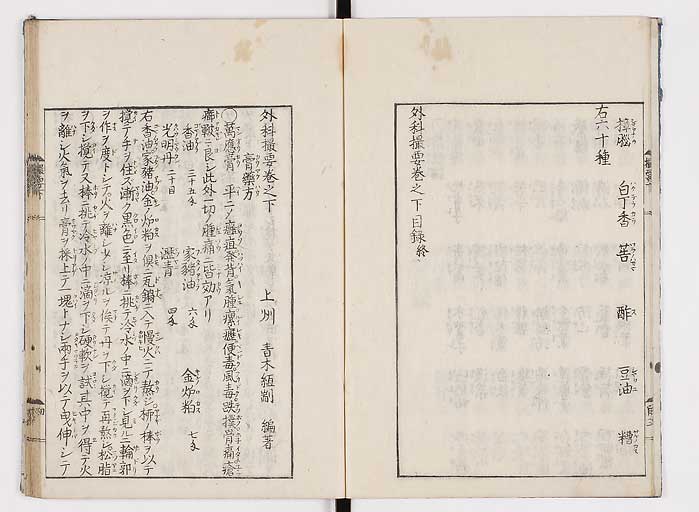 樟腦 白丁香 酢 豆油 糟
右六十種
外科撮要卷之下目録終
外科撮要卷之下
上州 青木 編著
膏藥方
萬應膏 平ニノ癰疽發背氣腫瘰癧便毒風毒跌撲骨痛瘡
癤 ニ良シ此外一切ノ腫痛ニ皆効アリ
香油 三十五 家猪油 六 金炉粕 七
光明丹 二十目 瀝青 四
右香油家猪油金炉粕ヲ倶ニ瓦鍋ニ入テ慢火ニテ熬シ柳ノ棒ヲ以テ
撹テ手ヲ住ス漸ク黒色ニ至リ棒ニ挑テ冷水ノ中ニ滴シ下シ見ルニ輪郭
ヲ作ヲ度トシテ火ヲ離レ少シ凉ルヲ俟テ丹ヲ下シ撹テ再熬シ松脂
ヲ下シ撹テ又棒ニ挑テ冷水中ニ滴ヲ下シ硬軟ヲ試其中ヲ得テ火
ヲ離シ火氣ヲ去リ膏ヲ棒上テ一塊トナシ兩手ヲ以テ曳伸シテ